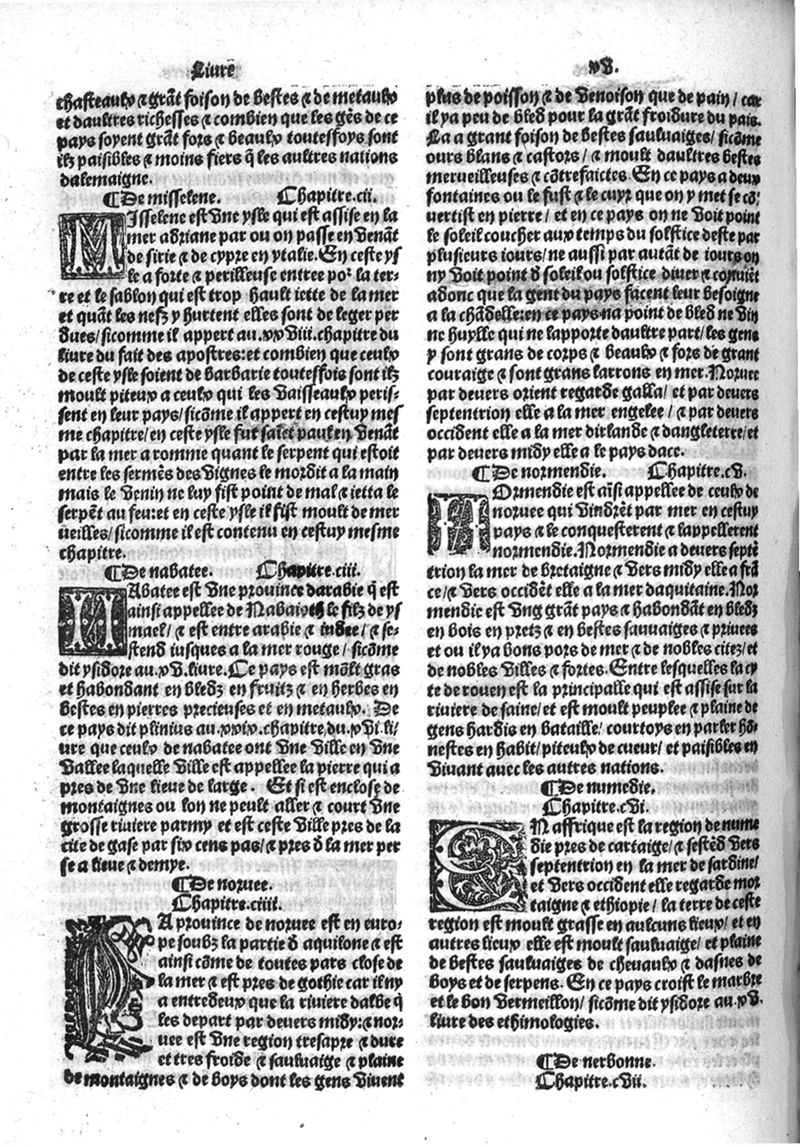 Liure
xv.
chasteaulx ⁊ grãt foison de bestes ⁊ de metaulx
et daultres richesses ⁊ combien que les gẽs de ce
pays soyent grãt fors ⁊ beaulx touteffoys sont
ilz paisibles ⁊ moins fiers q̃ les aultres nations
dalemaigne.
¶De misselene. Chapitre.cii.
MIsselene est vne ysle qui est assise en la
mer adriane par ou on passe en venãt
de sirie ⁊ de cypre en ytalie. En ceste ys
le a forte ⁊ perilleuse entree poᵘʳ la ter-
re et le sablon qui est trop hault iette de la mer
et quãt les nefz y hurtent elles sont de leger per
dues/sicomme il appert au.xxviii.chapitre du
liure du fait des apostres:et combien que ceulx
de ceste ysle soient de barbarie touteffois sont ilz
moult piteux a ceulx qui les vaisseaulx peris-
sent en leur pays/sicõme il appert en cestuy mes
me chapitre/en ceste ysle fut saĩct paul en venãt
par la mer a romme quant le serpent qui estoit
entre les sermẽs des vignes le mordit a la main
mais le venin ne luy fist point de mal ⁊ ietta le
serpẽt au feu:et en ceste ysle il fist moult de mer
ueilles/sicomme il est contenu en cestuy mesme
chapitre.
¶De nabatee. Chapitre.ciii.
NAbatee est vne prouince darabie q̃ est
ainsi appellee de Nabaioth le filz de ys
mael/⁊ est entre arabie ⁊ iudee/⁊ se-
stend iusques a la mer rouge/sicõme
dit ysidore au.xv.liure. Ce pays est mõlt gras
et habondant en bledz en fruitz ⁊ en herbes en
bestes en pierres precieuses et en metaulx. De
ce pays dit plinius au.xxix.chapitre du.xvi.li/
ure que ceulx de nabatee ont vne ville en vne
vallee laquelle ville est appellee la pierre qui a
pres de vne lieue de large. Et si est enclose de
montaignes ou lon ne peult aller ⁊ court vne
grosse riuiere parmy et est ceste ville pres de la
cite de gase par six cens pas/⁊ pres d̃ la mer per
se a lieue ⁊ demye.
¶De noruee.
Chapitre.ciiii.
LA prouince de noruee est en euro-
pe soubz la partie d̃ aquilone ⁊ est
ainsi cõme de toutes pars close de
la mer ⁊ est pres de gothie car il ny
a entredeux que la riuiere dalbe q̃
les depart par deuers midy:⁊ nor-
uee est vne region tresapre ⁊ dure
et tres froide ⁊ sauluaige ⁊ plaine
de montaignes ⁊ de boys dont les gens viuent
plus de poisson ⁊ de venoison que de pain/ car
il ya peu de bled pour la grãt froidure du pais.
La a grant foison de bestes sauluaiges/sicõme
ours blans ⁊ castors/⁊ moult daultres bestes
merueilleuses ⁊ cõtrefaictes. En ce pays a deux
fontaines ou le fust ⁊ le cuyr que on y met se cõ/
uertist en pierre/et en ce pays on ne voit point
le soleil coucher aux temps du solstice deste par
plusieurs iours/ne aussi par autãt de iours on
ny voit point d̃ soleil ou solstice diuer ⁊ conuiẽt
adonc que la gent du pays facent leur besoigne
a la chãdelle:en ce pays na point de bled ne vin
ne huylle qui ne lapporte daultre part/les gens
y sont grans de corps ⁊ beaulx ⁊ fors de grant
couraige ⁊ sont grans larrons en mer. Noruee
par deuers orient regarde galla/et par deuers
septentrion elle a la mer engelee/⁊ par deuers
occident elle a la mer dirlande ⁊ dangleterre/et
par deuers midy elle a le pays dace.
¶De normendie. Chapitre.cv.
NOrmendie est aĩsi appellee de ceulx de
noruee qui vindrẽt par mer en cestuy
pays ⁊ le conquesterent ⁊ lappellerent
normendie. Normendie a deuers septẽ
trion la mer de bretaigne ⁊ vers midy elle a frã
ce/⁊ vers occidẽt elle a la mer daquitaine. Nor
mendie est vng grãt pays ⁊ habondãt en bledz
en bois en pretz ⁊ en bestes sauuaiges ⁊ priuees
et ou il ya bons pors de mer ⁊ de nobles citez/et
de nobles villes ⁊ fortes. Entre lesquelles la cy
te de rouen est la principalle qui est assise sur la
riuiere de saine/et est moult peuplee ⁊ plaine de
gens hardis en bataille/courtoys en parler hõ-
nestes en habit/piteulx de cueur/et paisibles en
viuant auec les autres nations.
¶De numedie.
Chapitre.cvi.
EN affrique est la region de nume
die pres de cartaige/⁊ sestẽd vers
septentrion en la mer de sardine/
et vers occident elle regarde mor
taigne ⁊ ethiopie/ la terre de ceste
region est moult grasse en aulcuns lieux/et en
autres lieux elle est moult sauluaige/et plaine
de bestes sauluaiges de cheuaulx ⁊ dasnes de
boys et de serpens. En ce pays croist le marbre
et le bon vermeillon/sicõme dit ysidore au.xv.
liure des ethimologies.
¶De nerbonne.
Chapitre.cvii.